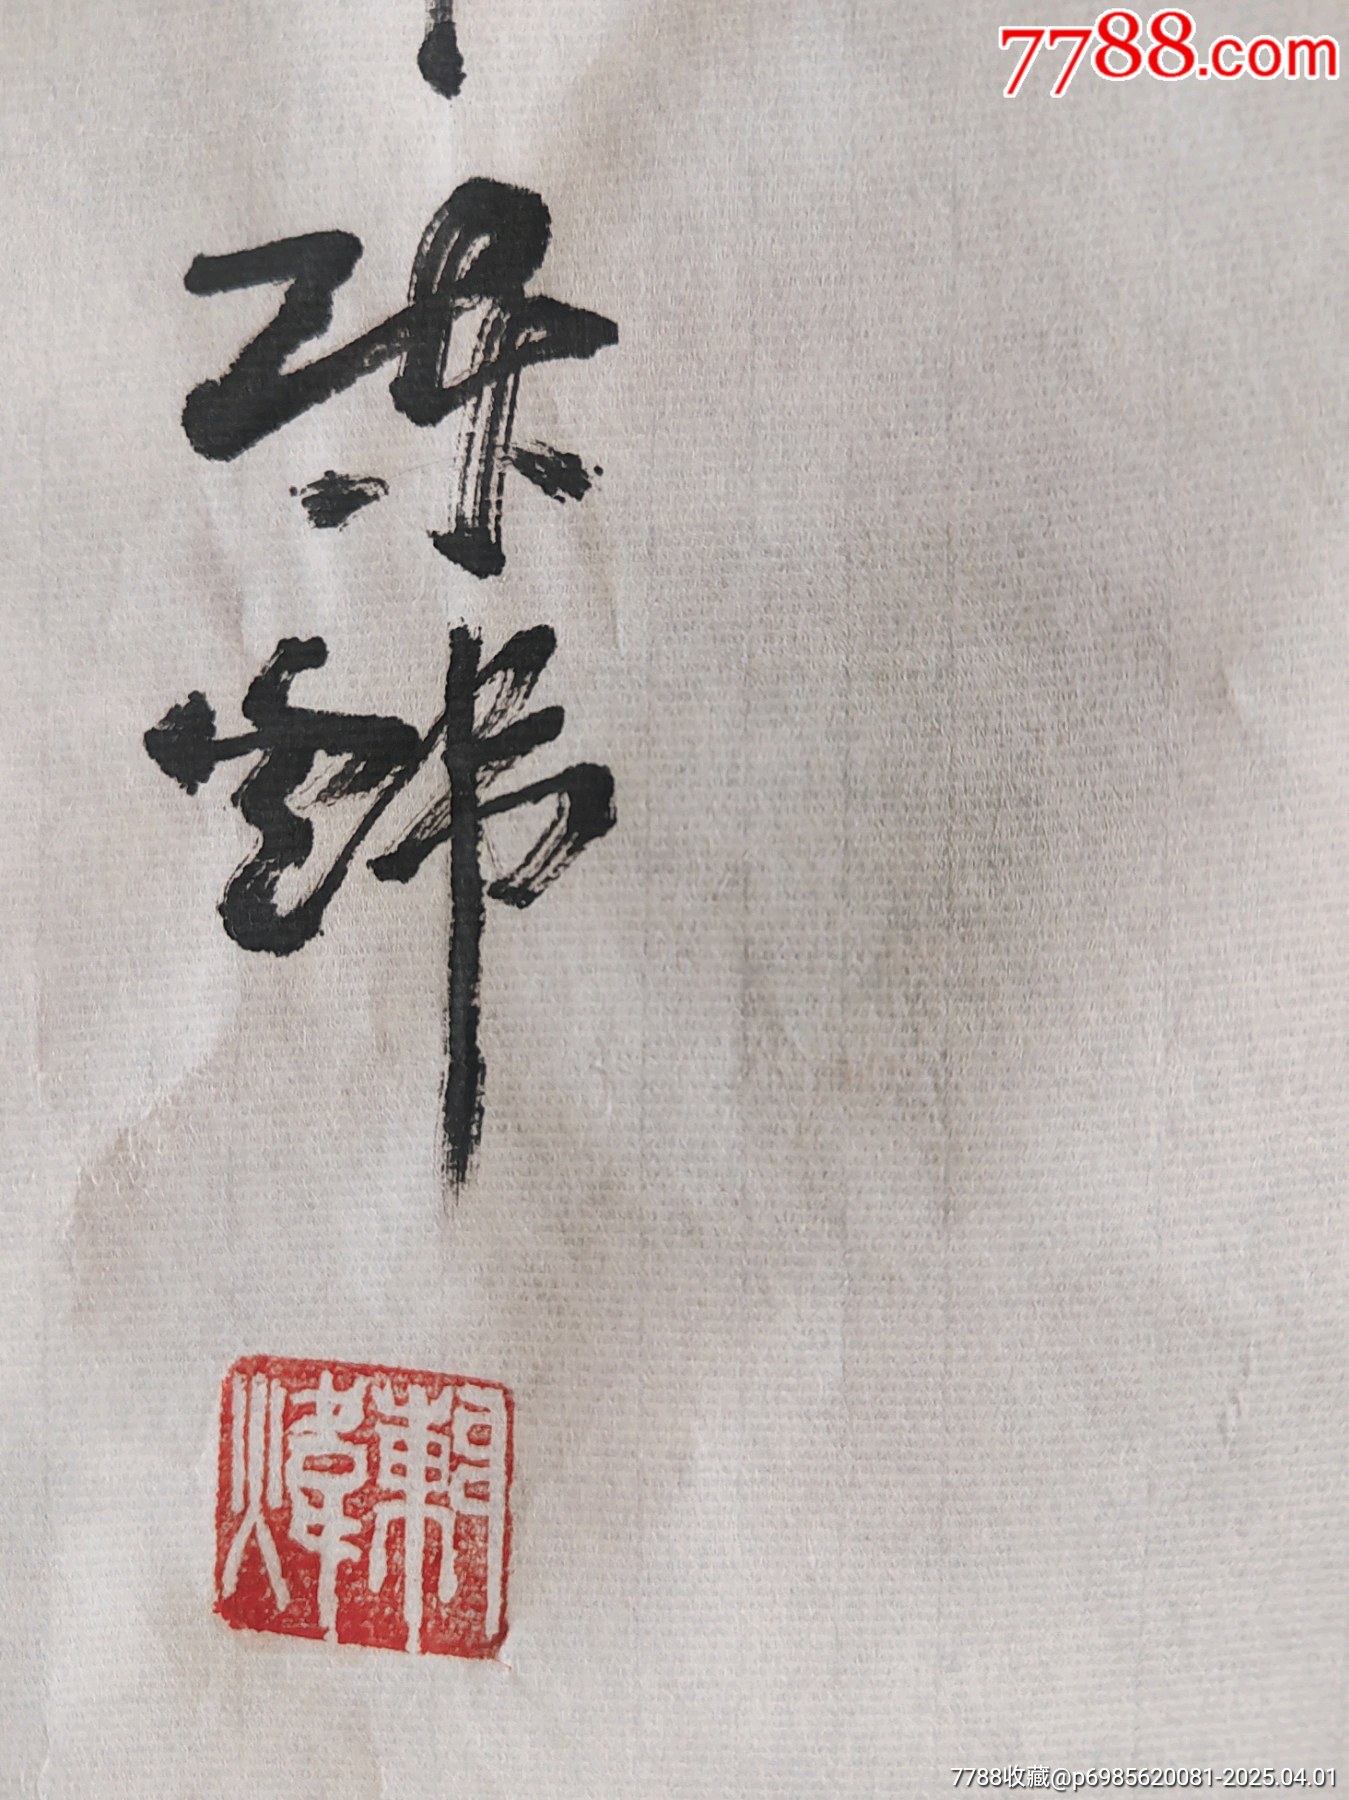 7788.com
陈
炜
陳煒
7788收藏@p6985620081-2025.04.01